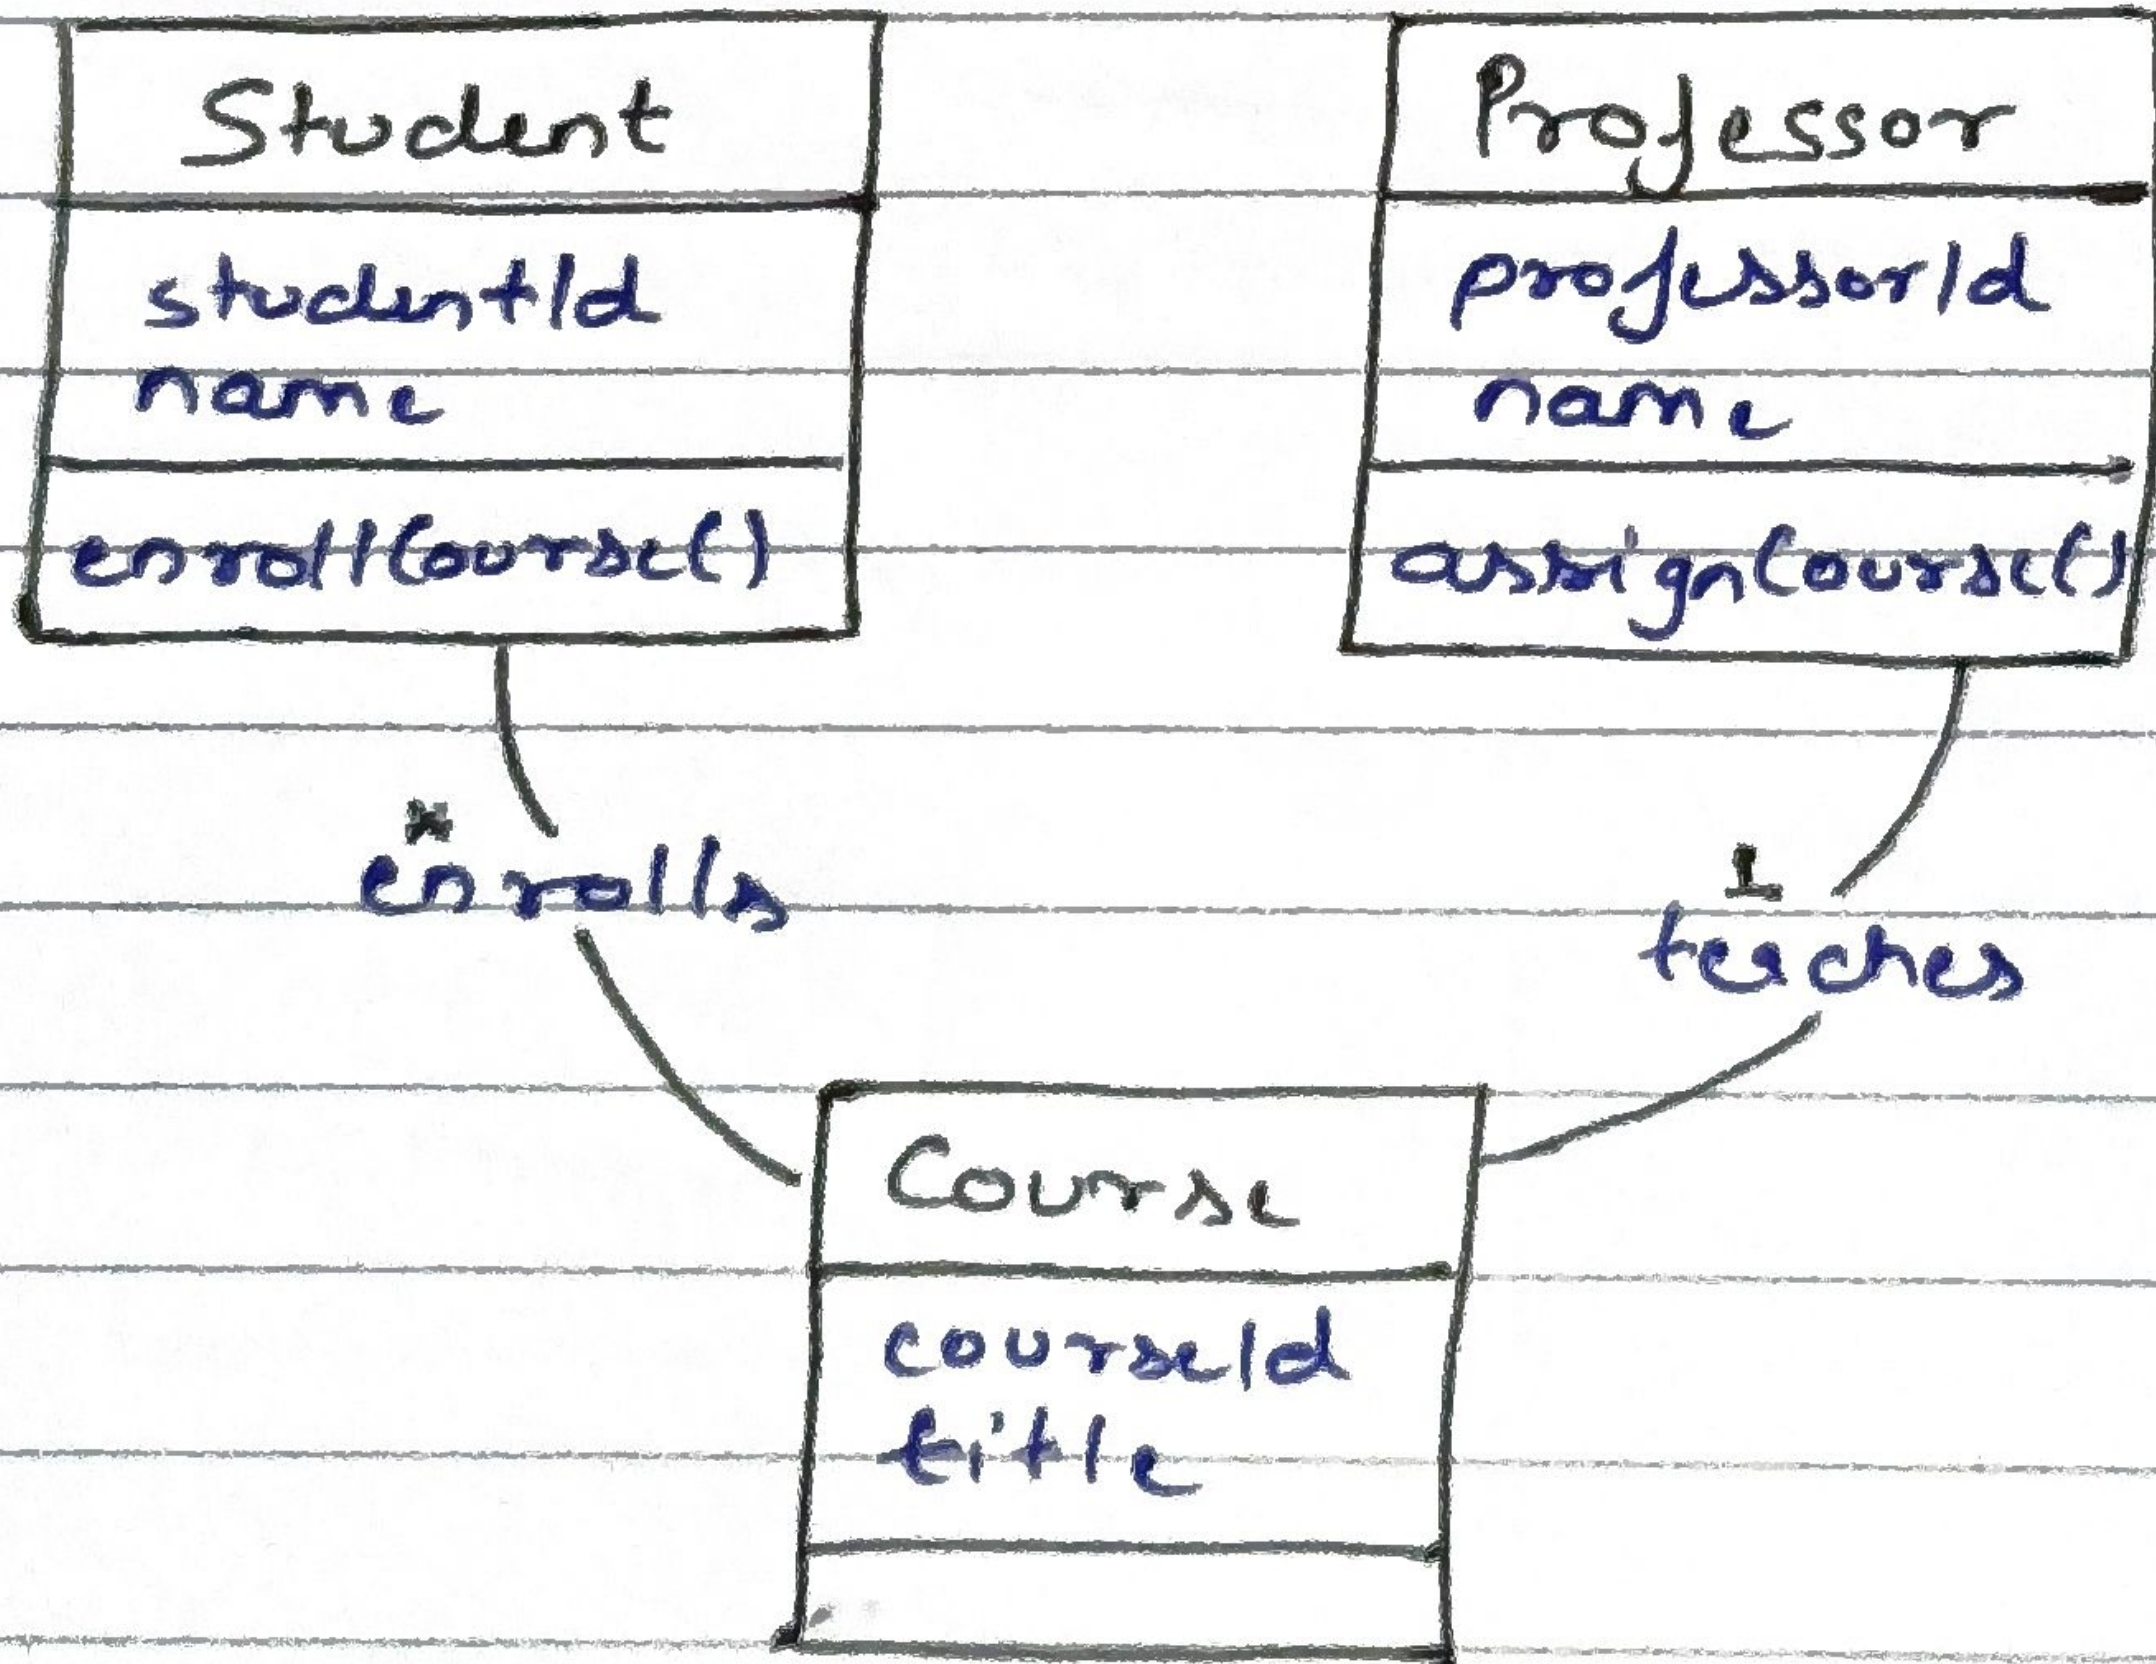 Student
studentId
name
enrollCourse()
Professor
professorId
name
assignCourse()
*
enrolls
1
teaches
Course
courseId
title